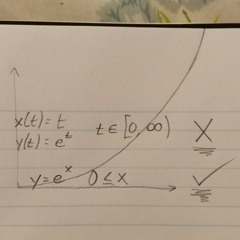 x(t) = t
y(t) = e^t
t ∈ [0, ∞) X
y = e^x 0 ≤ x ✓